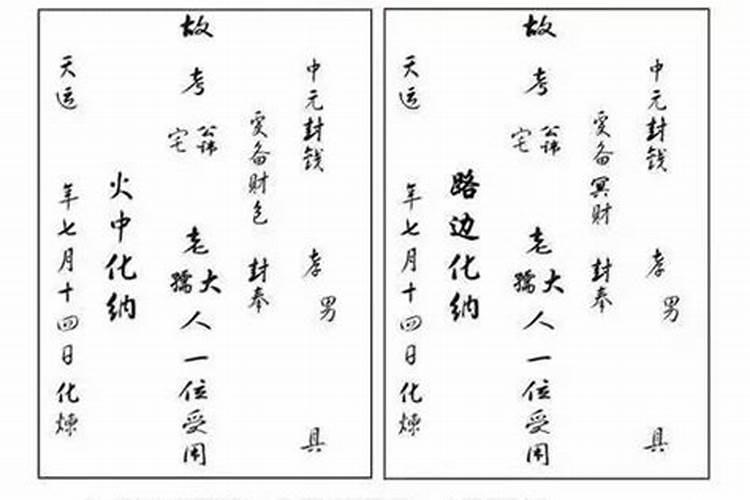 中元封钱 孝男 具
爰备财包 封奉
故考公讳宅 老大孺人一位受用
火中化纳
天运 年七月十四日化炼
中元封钱 孝男 具
爰备冥财 封奉
故考公讳宅 老大孺人一位受用
路边化纳
天运 年七月十四日化炼